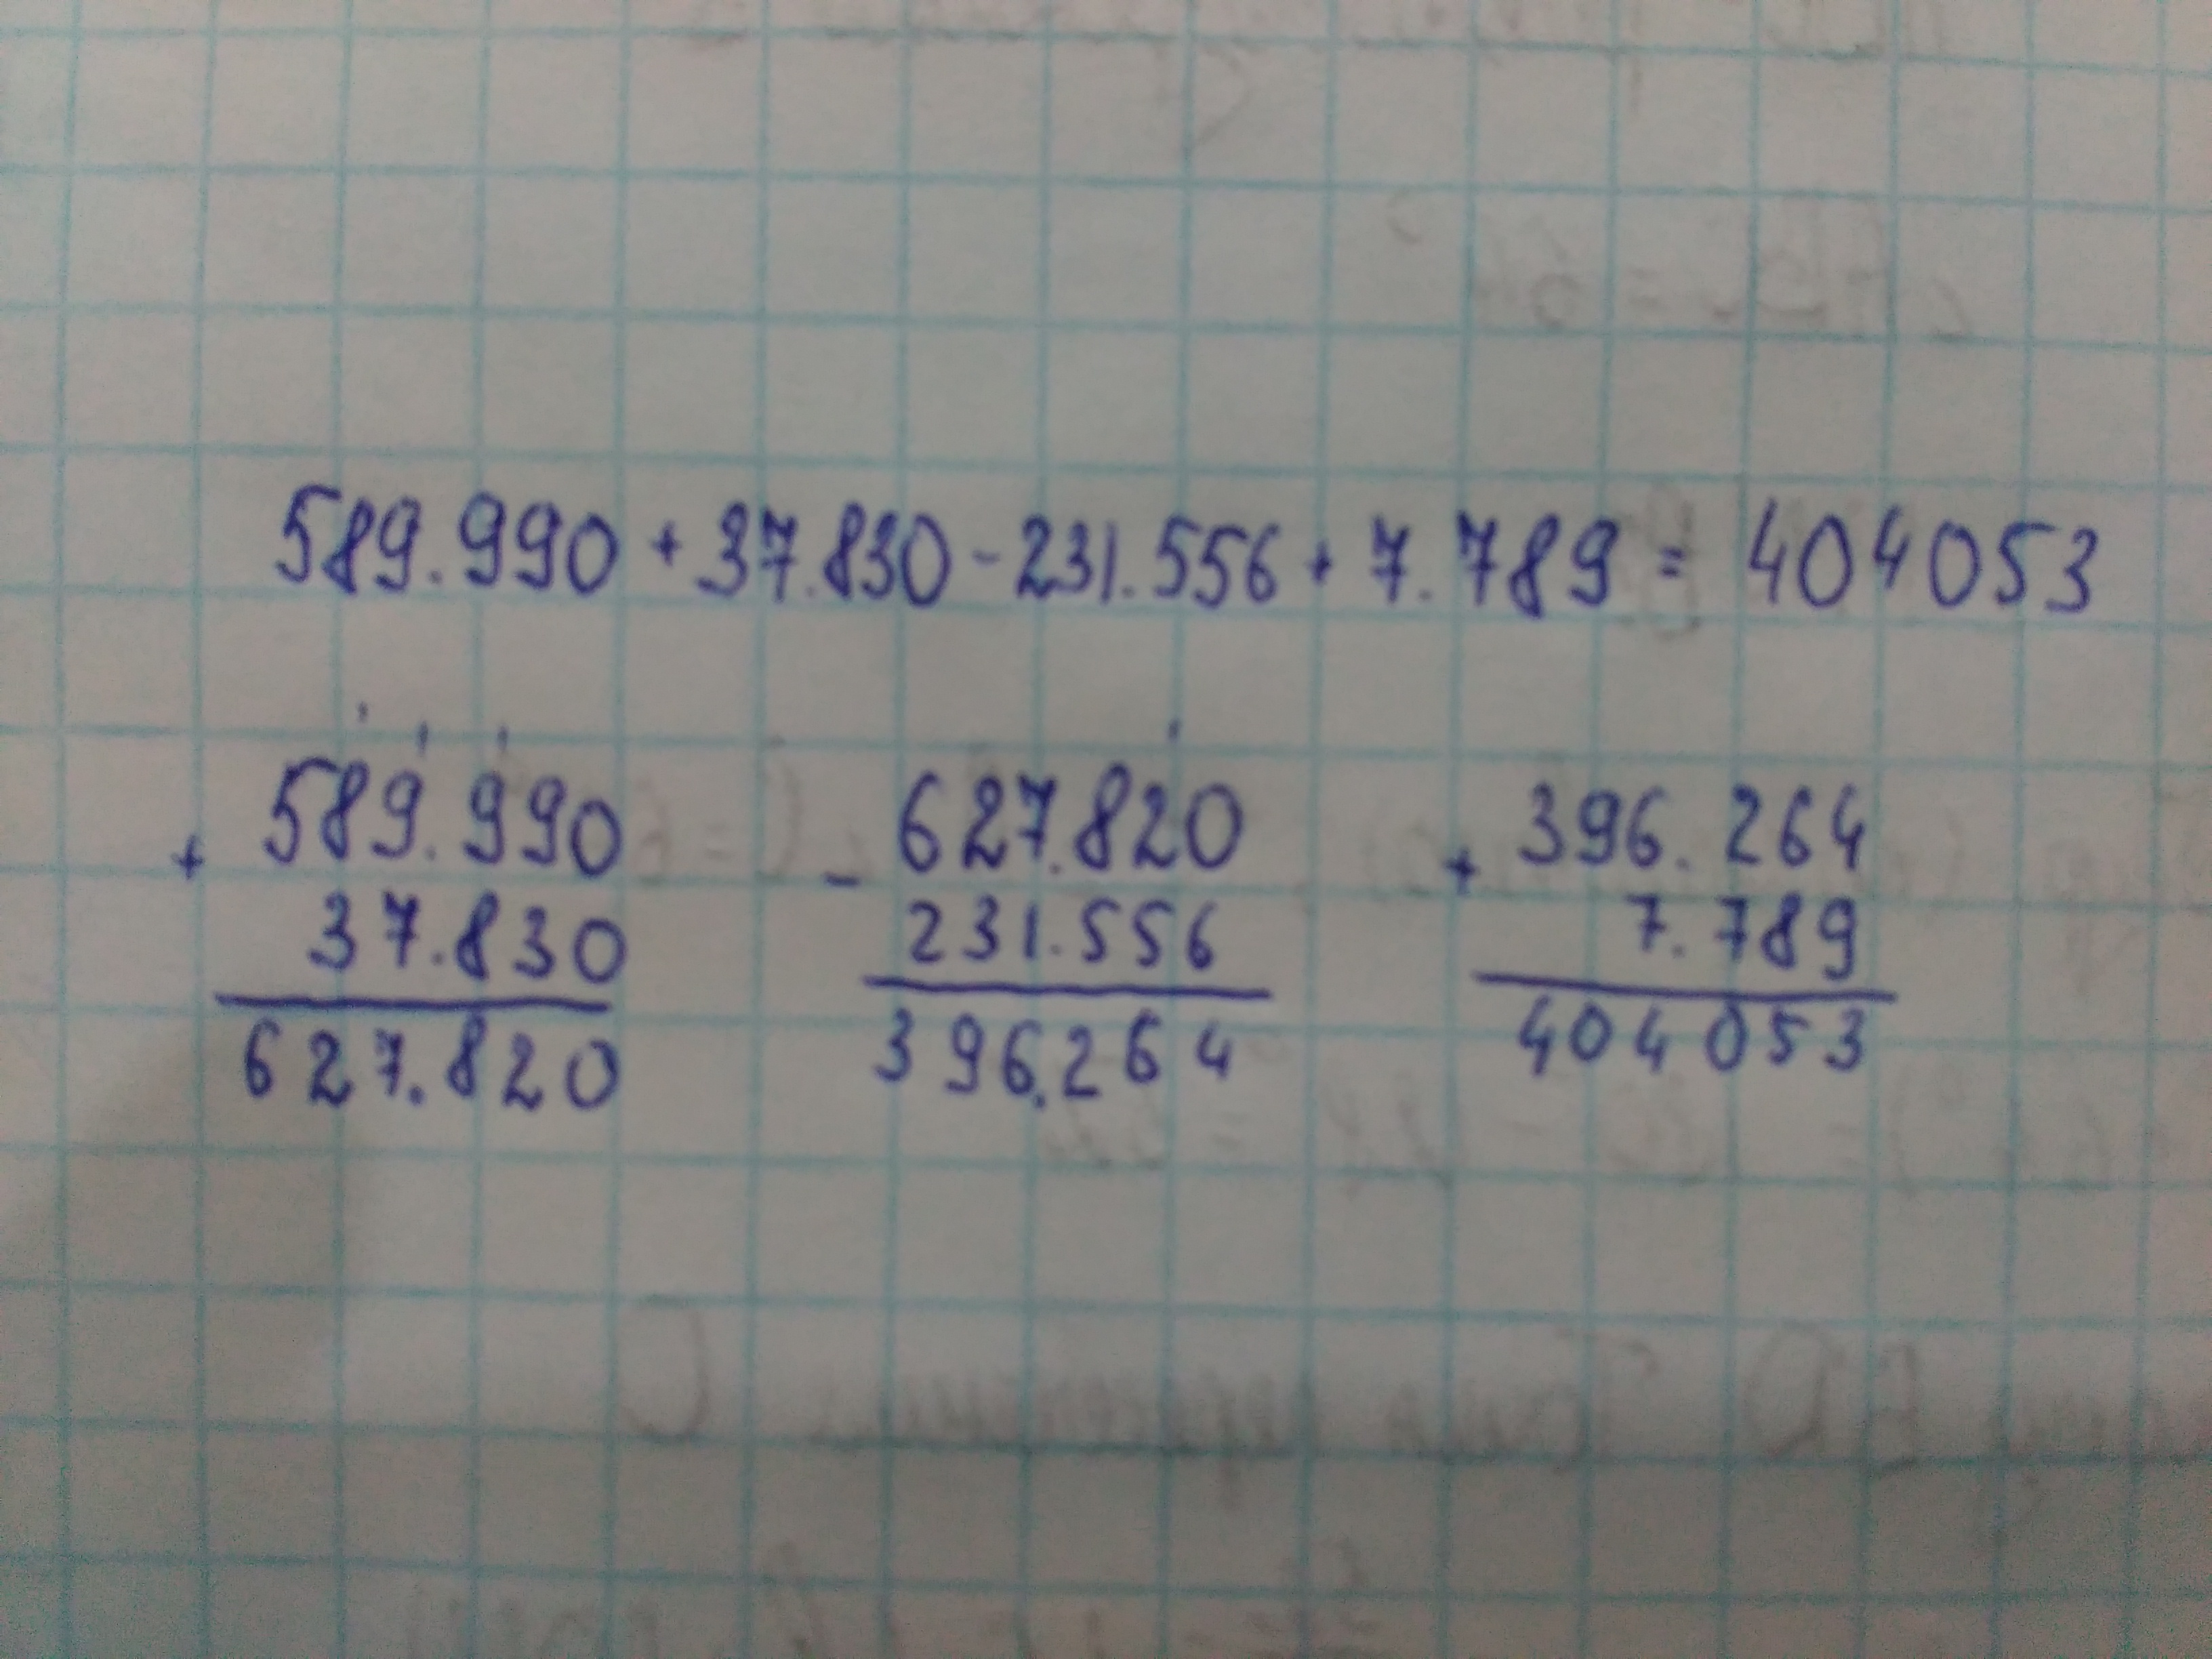 589.990 + 37.830 - 231.556 + 7.789 = 404053
+ 589.990
37.830
627.820
- 627.820
231.556
396.264
+ 396.264
7.789
404053